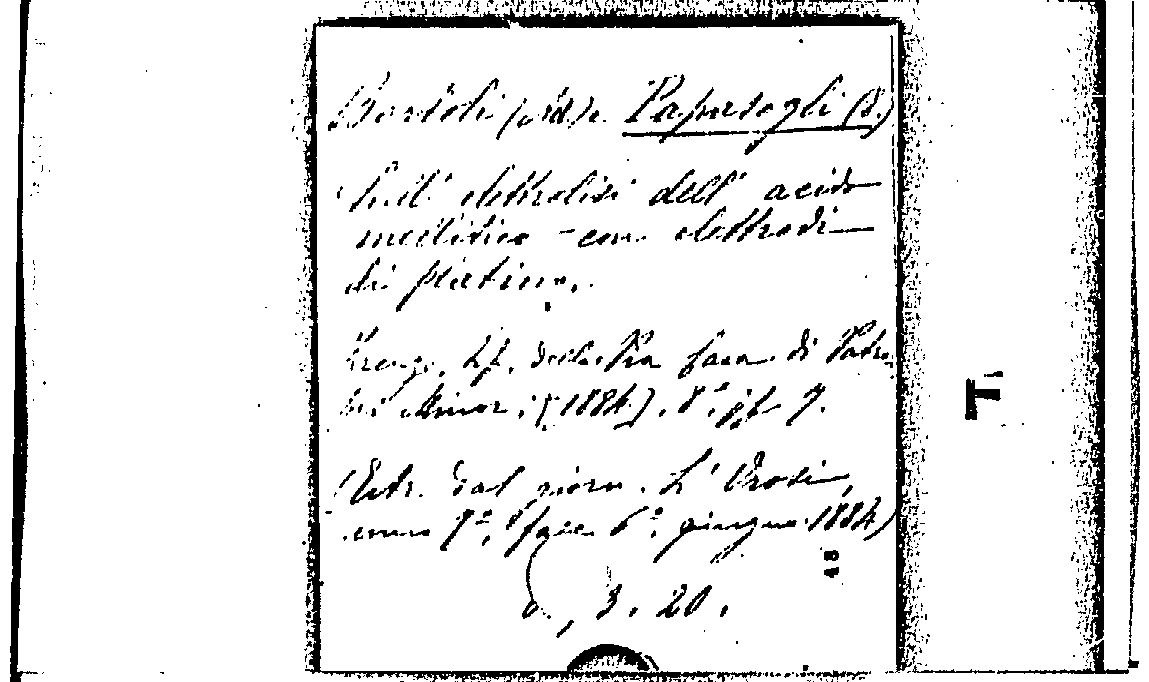 Bartoli (Ad.) e Papasogli (G.)
Sull' elettrolisi dell' acido
mellitico - con elettrodi
di platino.
Firenze, tip. della Pia Casa di Patro.
(1884). 8° pp. 7.
(Estr. dal giorn. L' Orosi,
anno 7°, fasc. 6°, giugno 1884)
3. 20.
18
T.